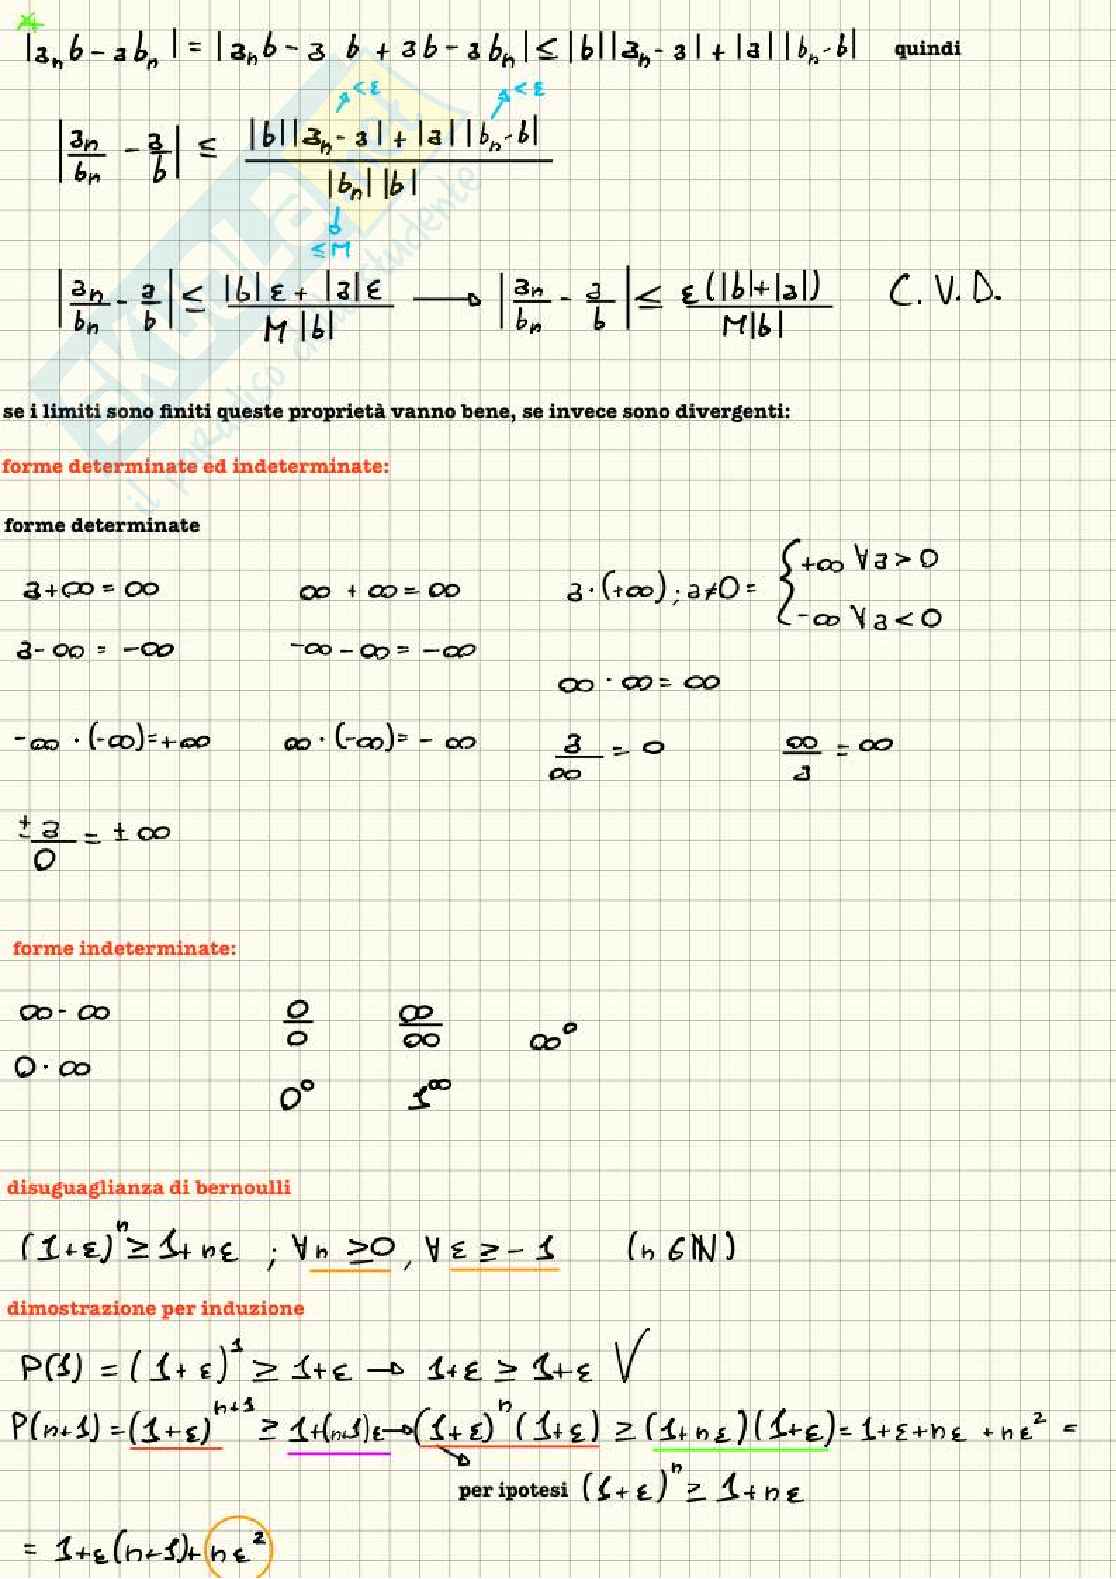 |aₙb - abₙ| = |aₙb - a b + ab - abₙ| ≤ |b||aₙ - a| + |a||bₙ - b| quindi
<ε <ε
|aₙ/bₙ - a/b| ≤ (|b||aₙ - a| + |a||bₙ - b|)/(|bₙ||b|)
≤M
|aₙ/bₙ - a/b| ≤ (|b|ε + |a|ε)/(M|b|) → |aₙ/bₙ - a/b| ≤ ε(|b|+|a|)/(M|b|) C.V.D.
se i limiti sono finiti queste proprietà vanno bene, se invece sono divergenti:
forme determinate ed indeterminate:
forme determinate
a+∞ = ∞ ∞ + ∞ = ∞ a·(+∞); a≠0 = { +∞ ∀a > 0
-∞ ∀a < 0
a-∞ = -∞ -∞ - ∞ = -∞
∞ · ∞ = ∞
-∞ · (-∞) = +∞ ∞ · (-∞) = -∞ a/∞ = 0 ∞/a = ∞
±a/0 = ±∞
forme indeterminate:
∞ - ∞ 0/0 ∞/∞ ∞⁰
0 · ∞
0⁰ 1^∞
disuguaglianza di bernoulli
(1+ε)ⁿ ≥ 1 + nε ; ∀n ≥ 0, ∀ε ≥ -1 (n ∈ ℕ)
dimostrazione per induzione
P(1) = (1+ε)¹ ≥ 1+ε → 1+ε ≥ 1+ε V
P(n+1) = (1+ε)ⁿ⁺¹ ≥ 1+(n+1)ε → (1+ε)ⁿ(1+ε) ≥ (1+nε)(1+ε) = 1+ε+nε+nε² =
per ipotesi (1+ε)ⁿ ≥ 1+nε
= 1+ε(n+1)+nε²
SKUOLA.net
il paradiso dello studente